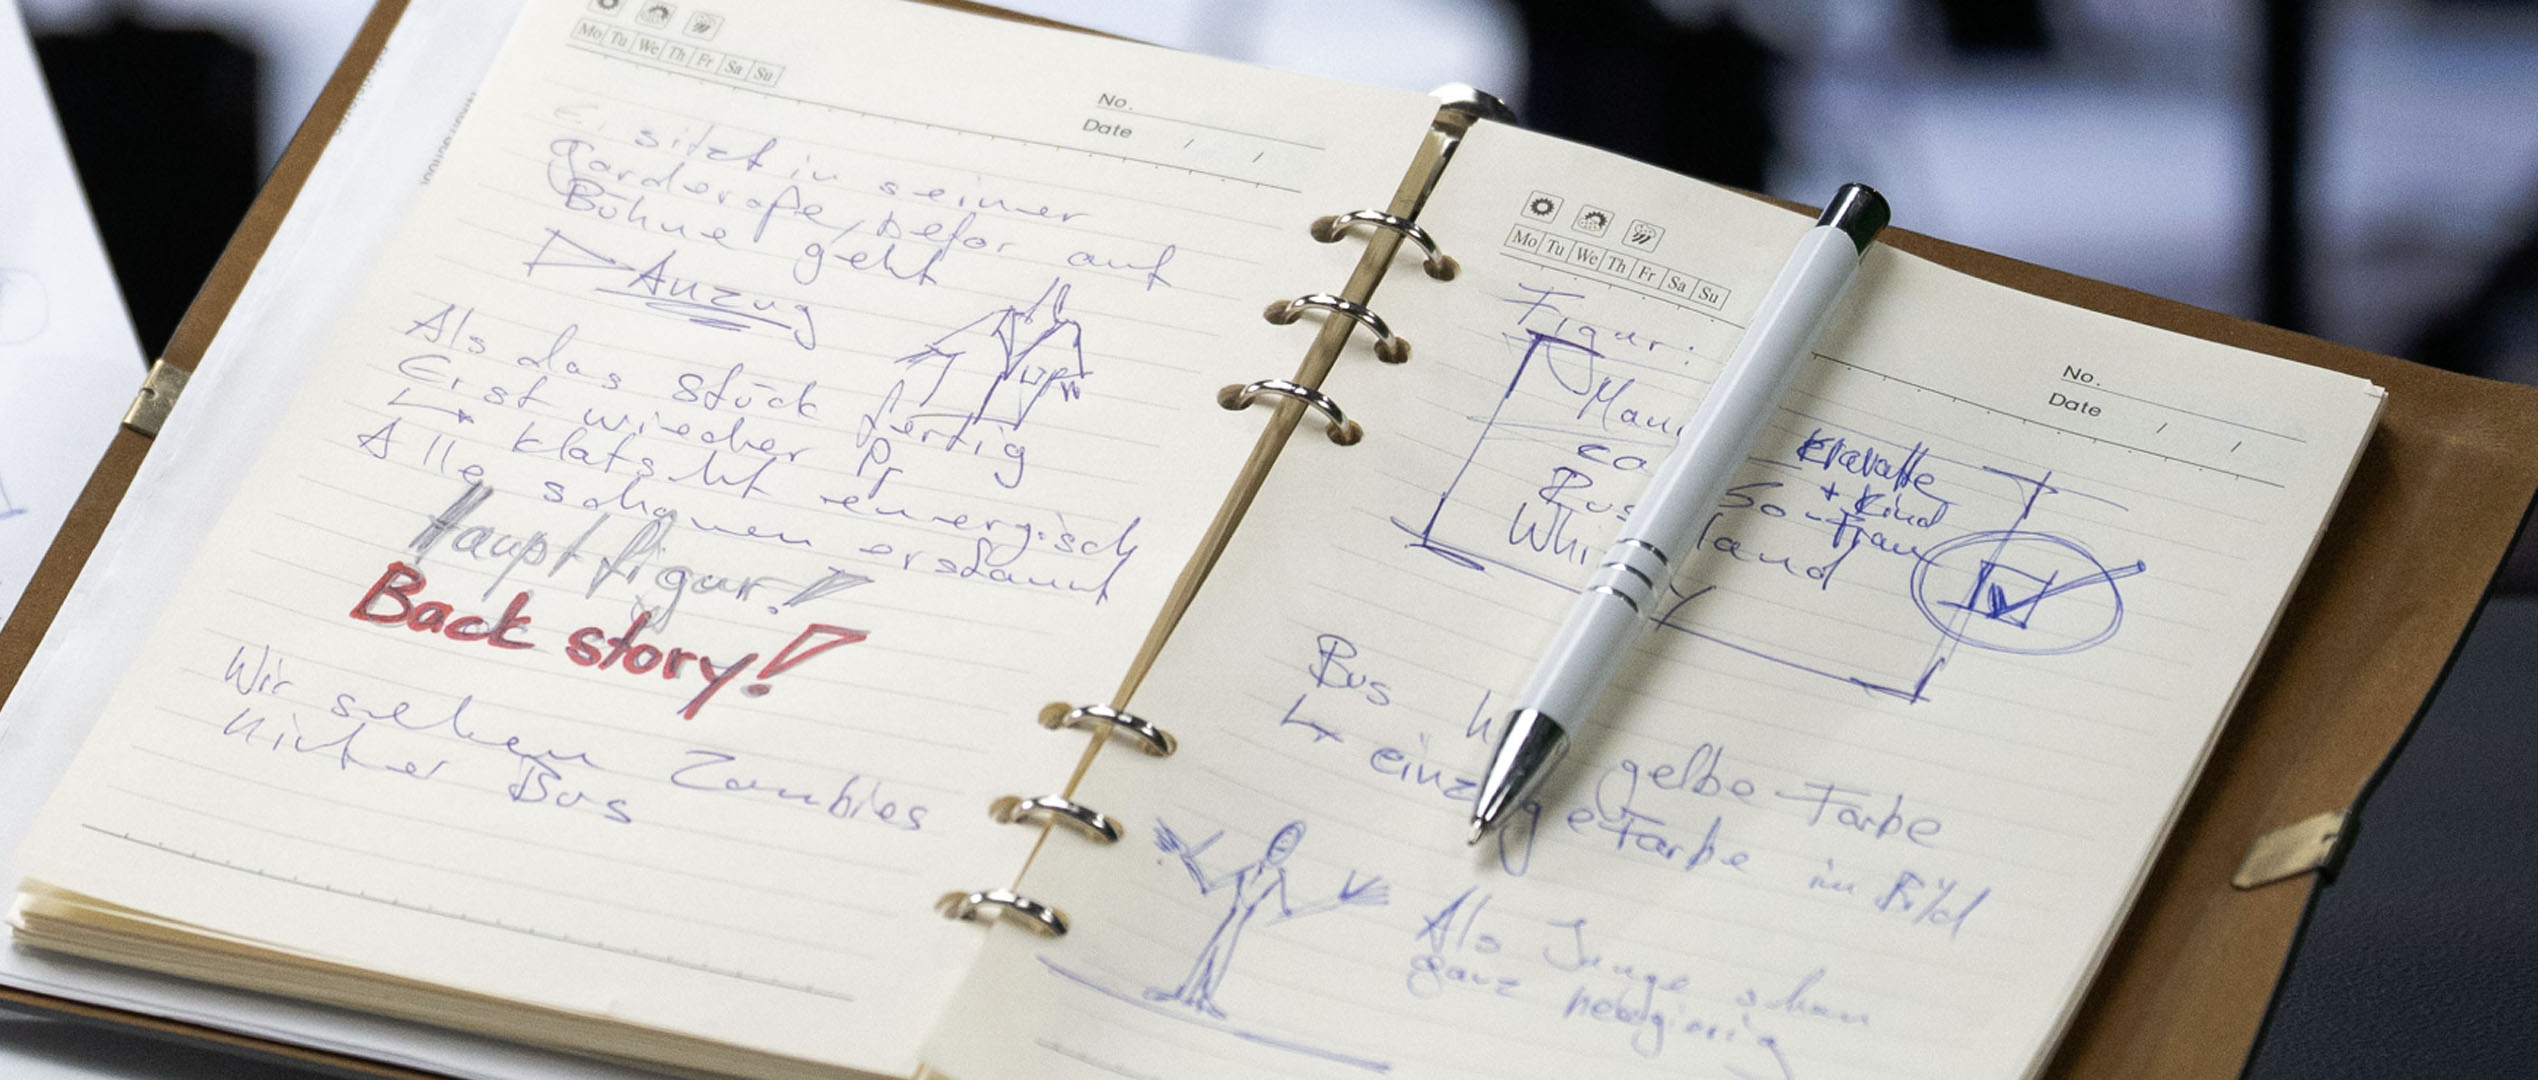 Mo Tu We Th Fr Sa Su
No.
Date / /
Er sitzt in seiner
Garderobe, befor auf
Bühne geht
Anzug
Als das Stück fertig
Erst wiecher
klatscht energisch
Alle schauen erstaunt
Hauptfigur!
Back story!
Wir sehen Zombies
hinter Bus
Mo Tu We Th Fr Sa Su
No.
Date / /
Figur:
Kravatte
+ Kind
Frau
Bus gelbe Farbe
Farbe im Bild
Als Junge schon
ganz neugierig